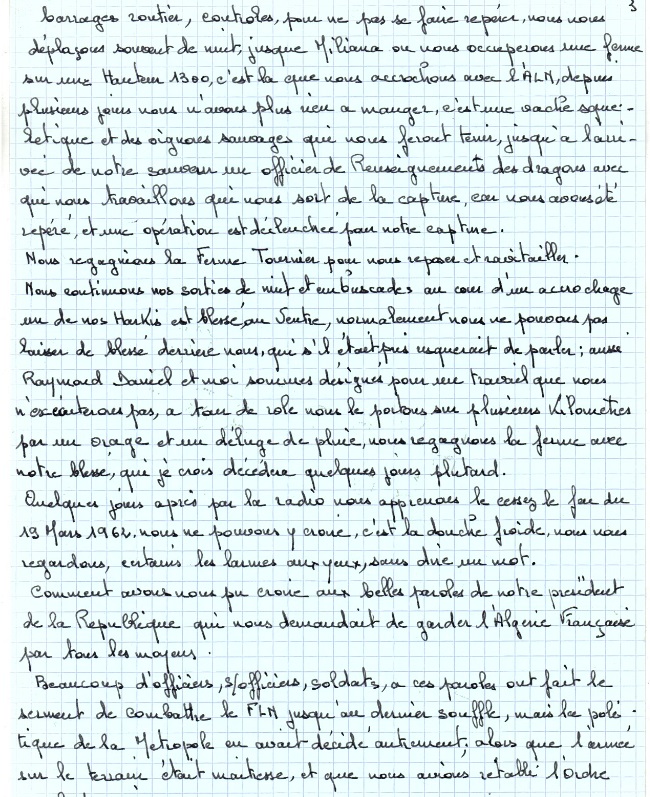 3
barrages routier, controles, pour ne pas se faire repérer, nous nous
déplaçons souvent de nuit, jusque Miliana ou nous occuperons une ferme
sur une Hauteur 1300, c'est la que nous accrochons avec l'ALN, depuis
plusieurs jours nous n'avons plus rien a manger, c'est une vache sque-
letique et des oignons sauvages qui nous feront tenir, jusqu'a l'arri-
vée de notre sauveur un officier de Renseignements des dragons avec
qui nous travaillons qui nous sort de la capture, car nous avons été
repéré, et une opération est déclenchée pour notre capture.
Nous regagnions la Ferme Tournier pour nous reposer et ravitailler.
Nous continuons nos sorties de nuit et embuscades au cour d'un accrochage
un de nos Harkis est blessé au Ventre, normalement nous ne pouvons pas
laisser de blessé derrière nous, qui s'il était pris risquerait de parler ; aussi
Raymond Daniel et moi sommes designés pour un travail que nous
n'excéuterons pas, a tour de role nous le portons sur plusieurs Kilometres
par un orage et un déluge de pluie, nous regagnons la ferme avec
notre blessé, qui je crois décédera quelques jours plutard.
Quelques jours après par la radio nous apprenons le cessez le feu du
19 Mars 1962. nous ne pouvons y croire, c'est la douche froide, nous nous
regardons, certains les larmes aux yeux, sans dire un mot.
Comment avons nous pu croire aux belles paroles de notre président
de la Republique qui nous demandait de garder l'Algerie Française
par tous les moyens.
Beaucoup d'officiers, s/officiers, soldats, a ces paroles ont fait le
serment de combattre le FLN jusqu'au dernier souffle, mais la poli-
tique de la Metropole en avait décidé autrement, alors que l'armée
sur le terrain était maitresse, et que nous avions rétabli l'Ordre